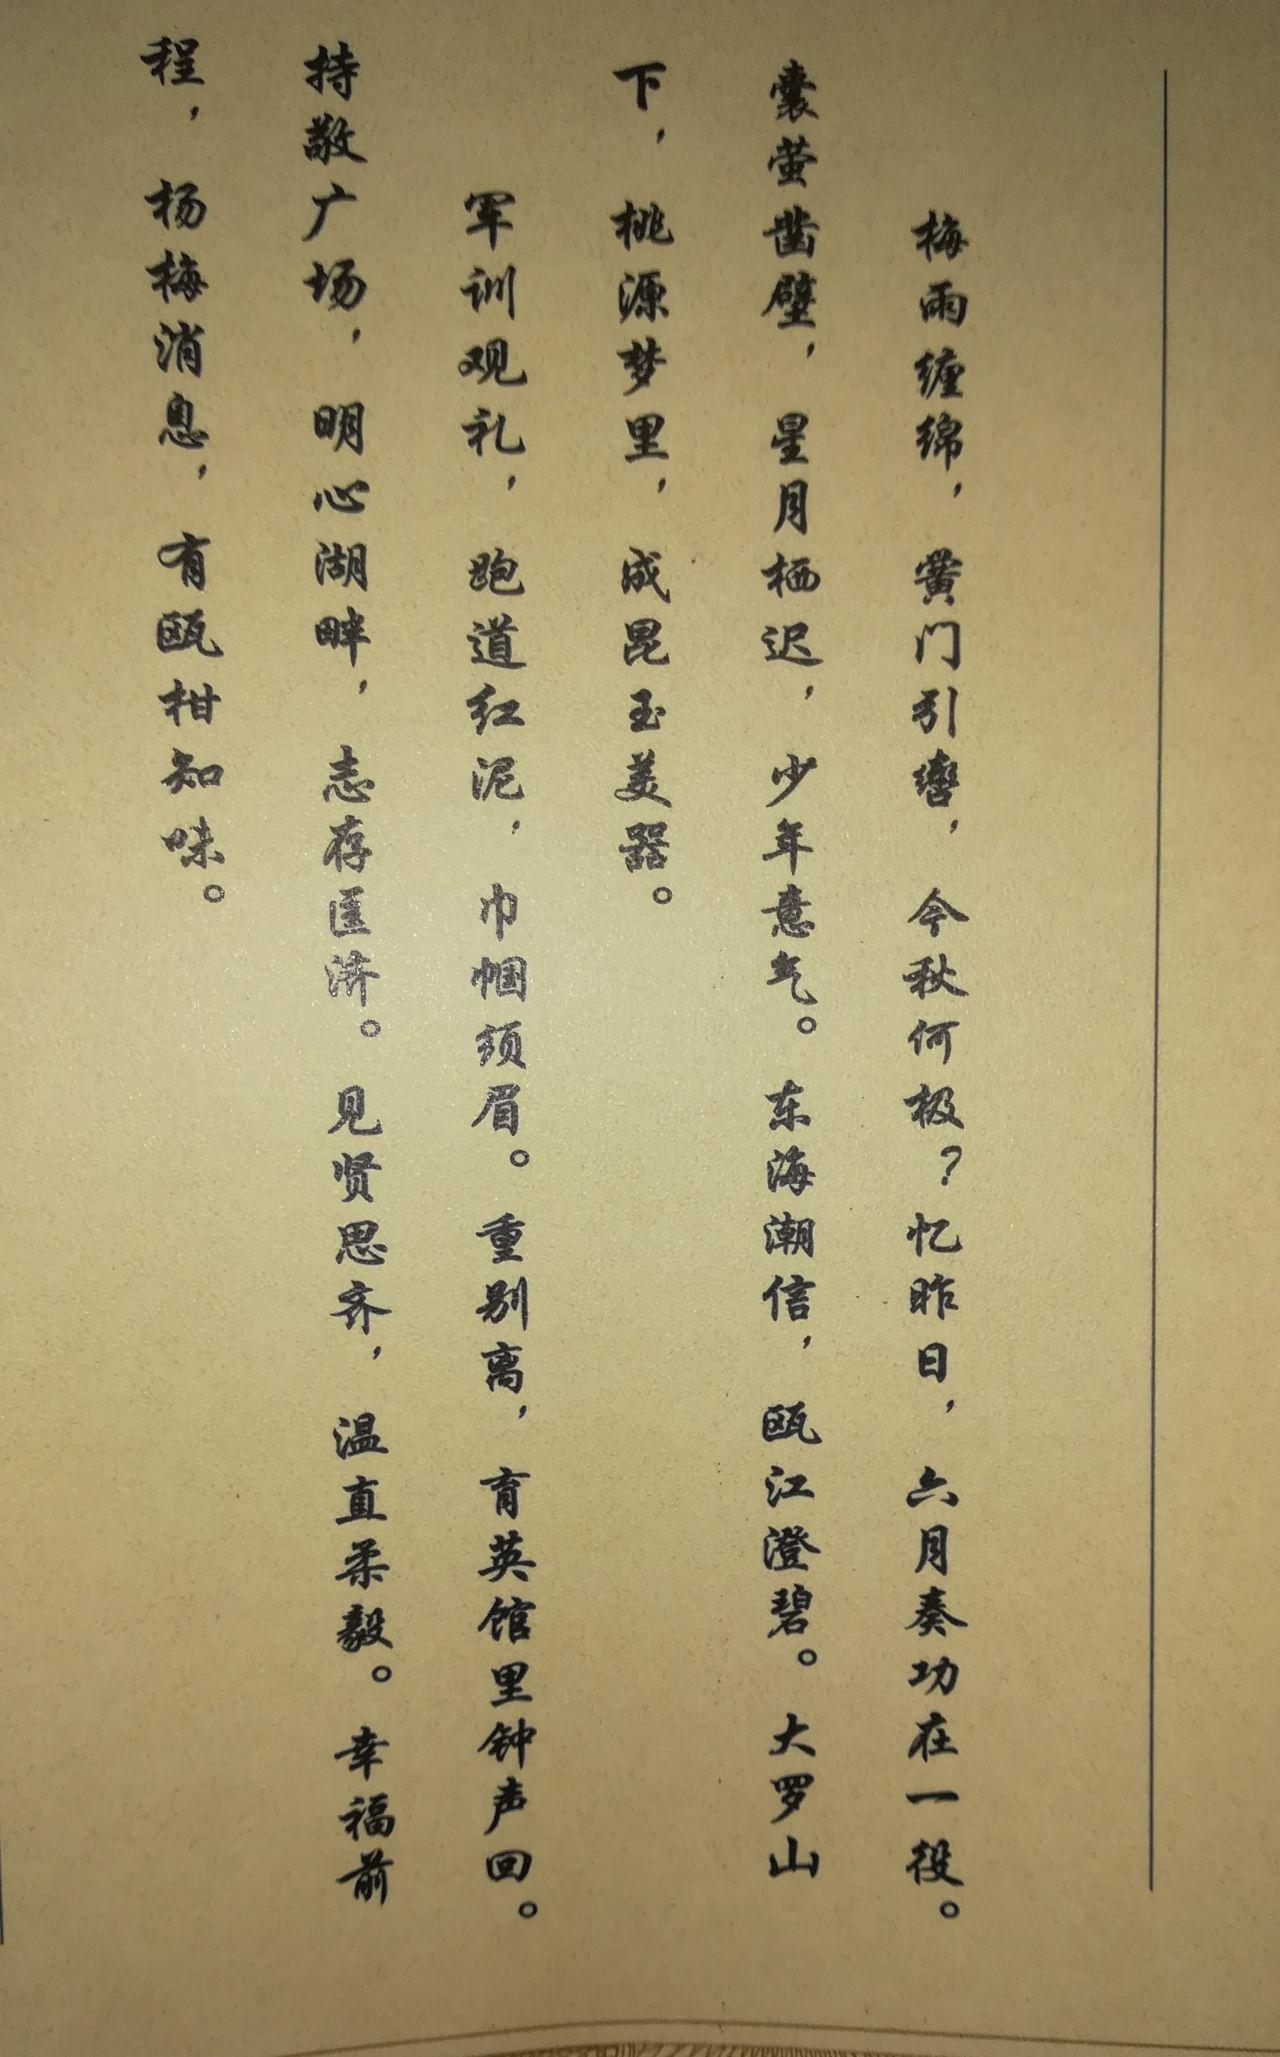 梅雨缠绵，黉门引辔，今秋何极？忆昨日，六月奏功在一役。
囊萤凿壁，星月栖迟，少年意气。东海潮信，瓯江澄碧。大罗山
下，桃源梦里，成昆玉美器。
军训观礼，跑道红泥，巾帼须眉。重别离，育英馆里钟声回。
持敬广场，明心湖畔，志存匡济。见贤思齐，温直柔毅。幸福前
程，杨梅消息，有瓯柑知味。